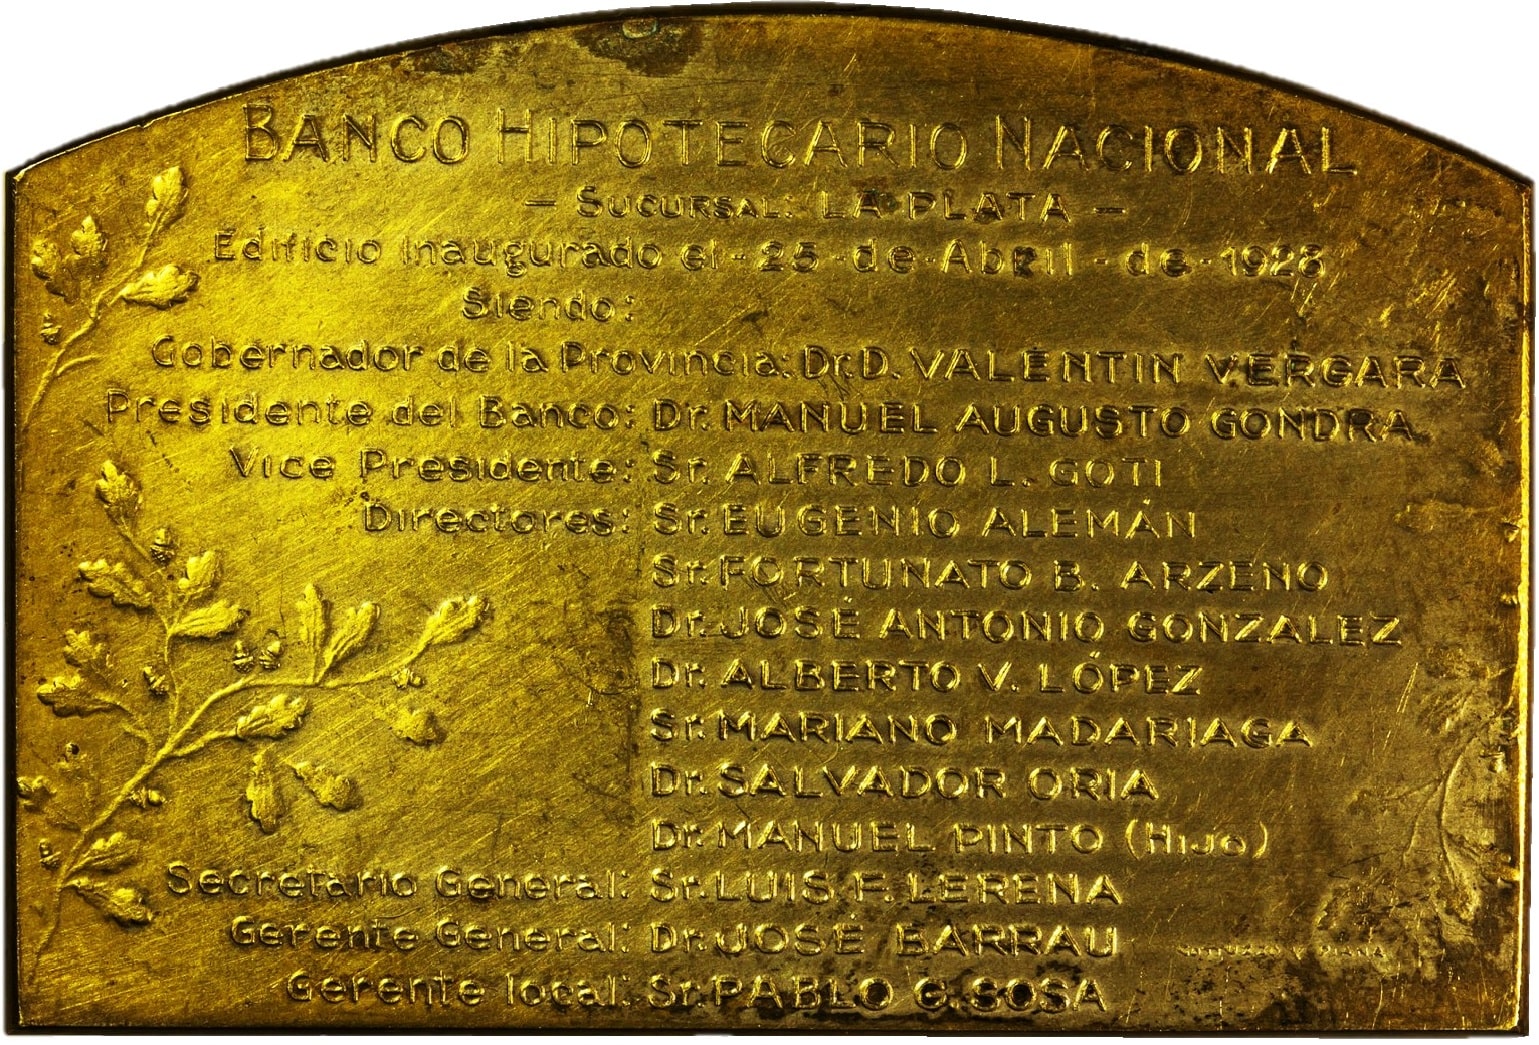 BANCO HIPOTECARIO NACIONAL
— SUCURSAL: LA PLATA —
Edificio inaugurado el - 25 - de - Abril - de - 1928
Siendo:
Gobernador de la Provincia: Dr. D. VALENTIN VERGARA
Presidente del Banco: Dr. MANUEL AUGUSTO GONDRA
Vice Presidente: Sr. ALFREDO L. GOTI
Directores: Sr. EUGENIO ALEMÁN
Sr. FORTUNATO B. ARZENO
Dr. JOSÉ ANTONIO GONZALEZ
Dr. ALBERTO V. LÓPEZ
Sr. MARIANO MADARIAGA
Dr. SALVADOR ORIA
Dr. MANUEL PINTO (HIJO)
Secretario General: Sr. LUIS F. LERENA
Gerente General: Dr. JOSÉ BARRAU
Gerente local: Sr. PABLO G. SOSA